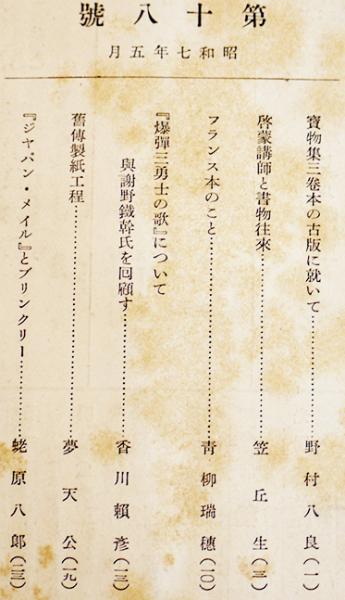 第十八號
昭和七年五月
寶物集三卷本の古版に就いて…………野村八良(一)
啓蒙講師と書物往來…………笠丘生(三)
フランス本のこと…………青柳瑞穗(一〇)
『爆彈三勇士の歌』について
與謝野鐵幹氏を囘顧す…………香川賴彥(一三)
舊傳製紙工程…………夢天公(一九)
『ジャパン・メイル』とブリンクリー…………蛯原八郞(二三)